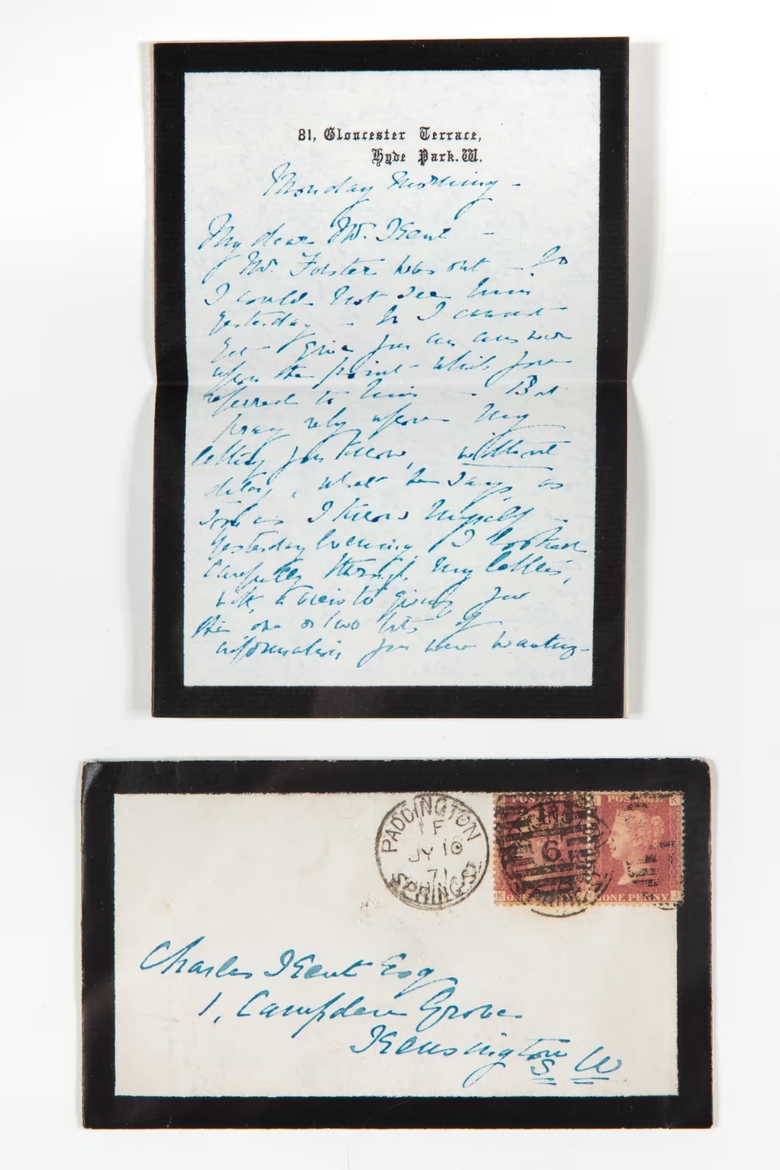 81, Gloucester Terrace,
Hyde Park. W.
Monday Morning –
My dear Mr. Kent –
Mr. Forster was out – So
I could not see him
yesterday – So I cannot
yet give you an answer
upon the point which you
referred to him – But
pray rely upon my
letting you know, without
delay, what he says as
soon as I know myself –
Yesterday Evening I looked
carefully through my letters,
with a view to giving you
the one or two bits of
information you were wanting –
PADDINGTON
1 F
JY 10
71
SPRING ST
POSTAGE
POSTAGE
6
ONE PENNY
Charles Kent Esq
1, Campden Grove
Kensington
S W